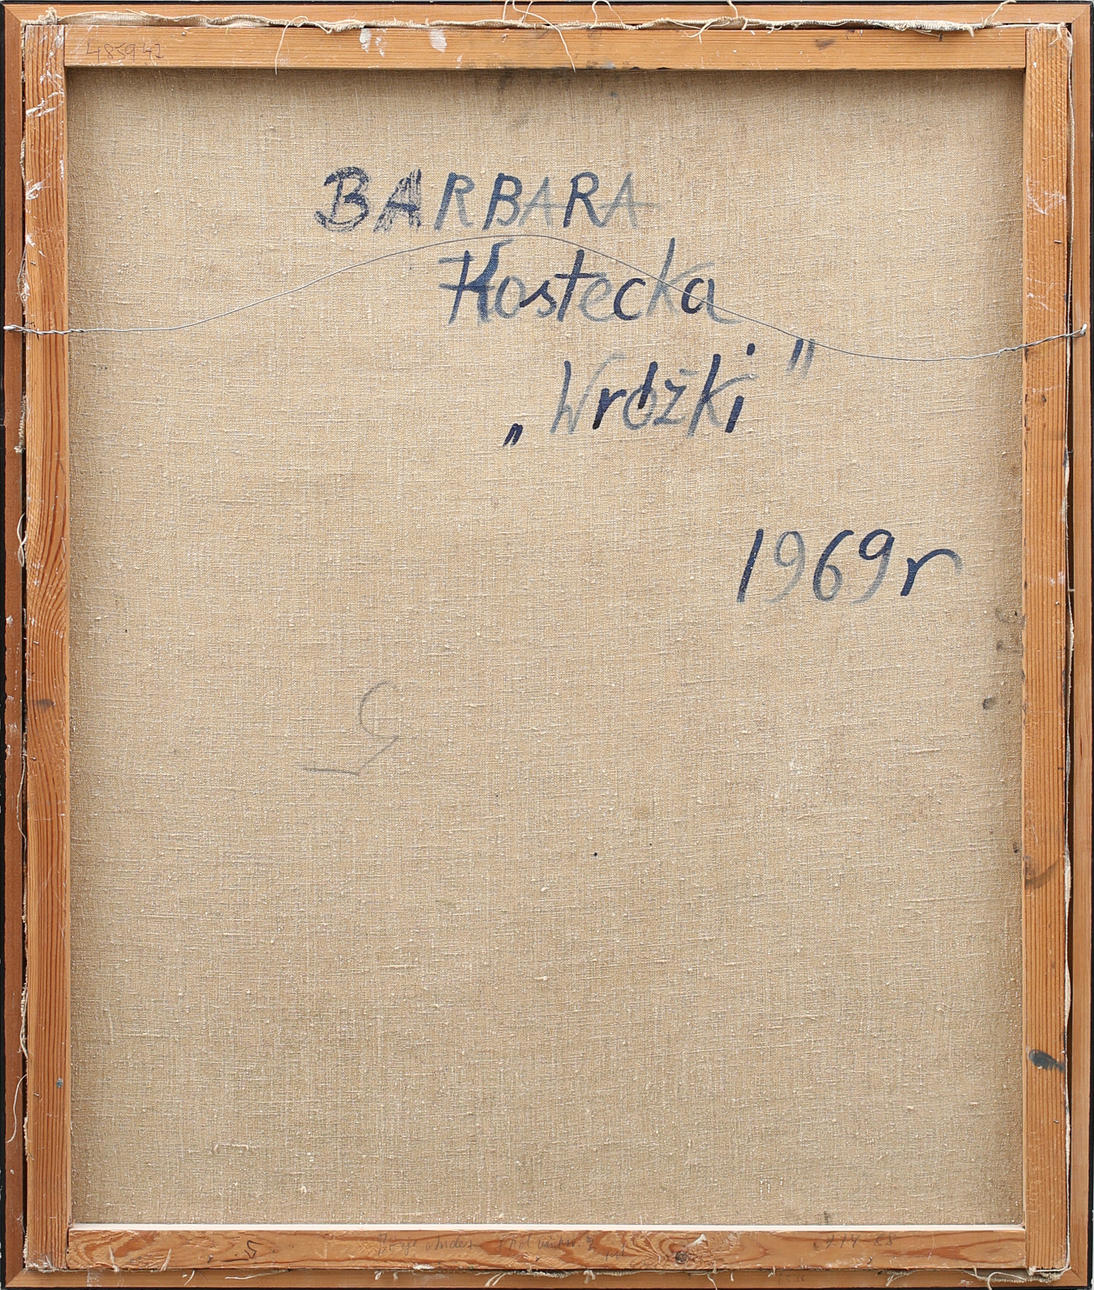 483942
BARBARA
Kostecka
„Wróżki"
1969r
5
5